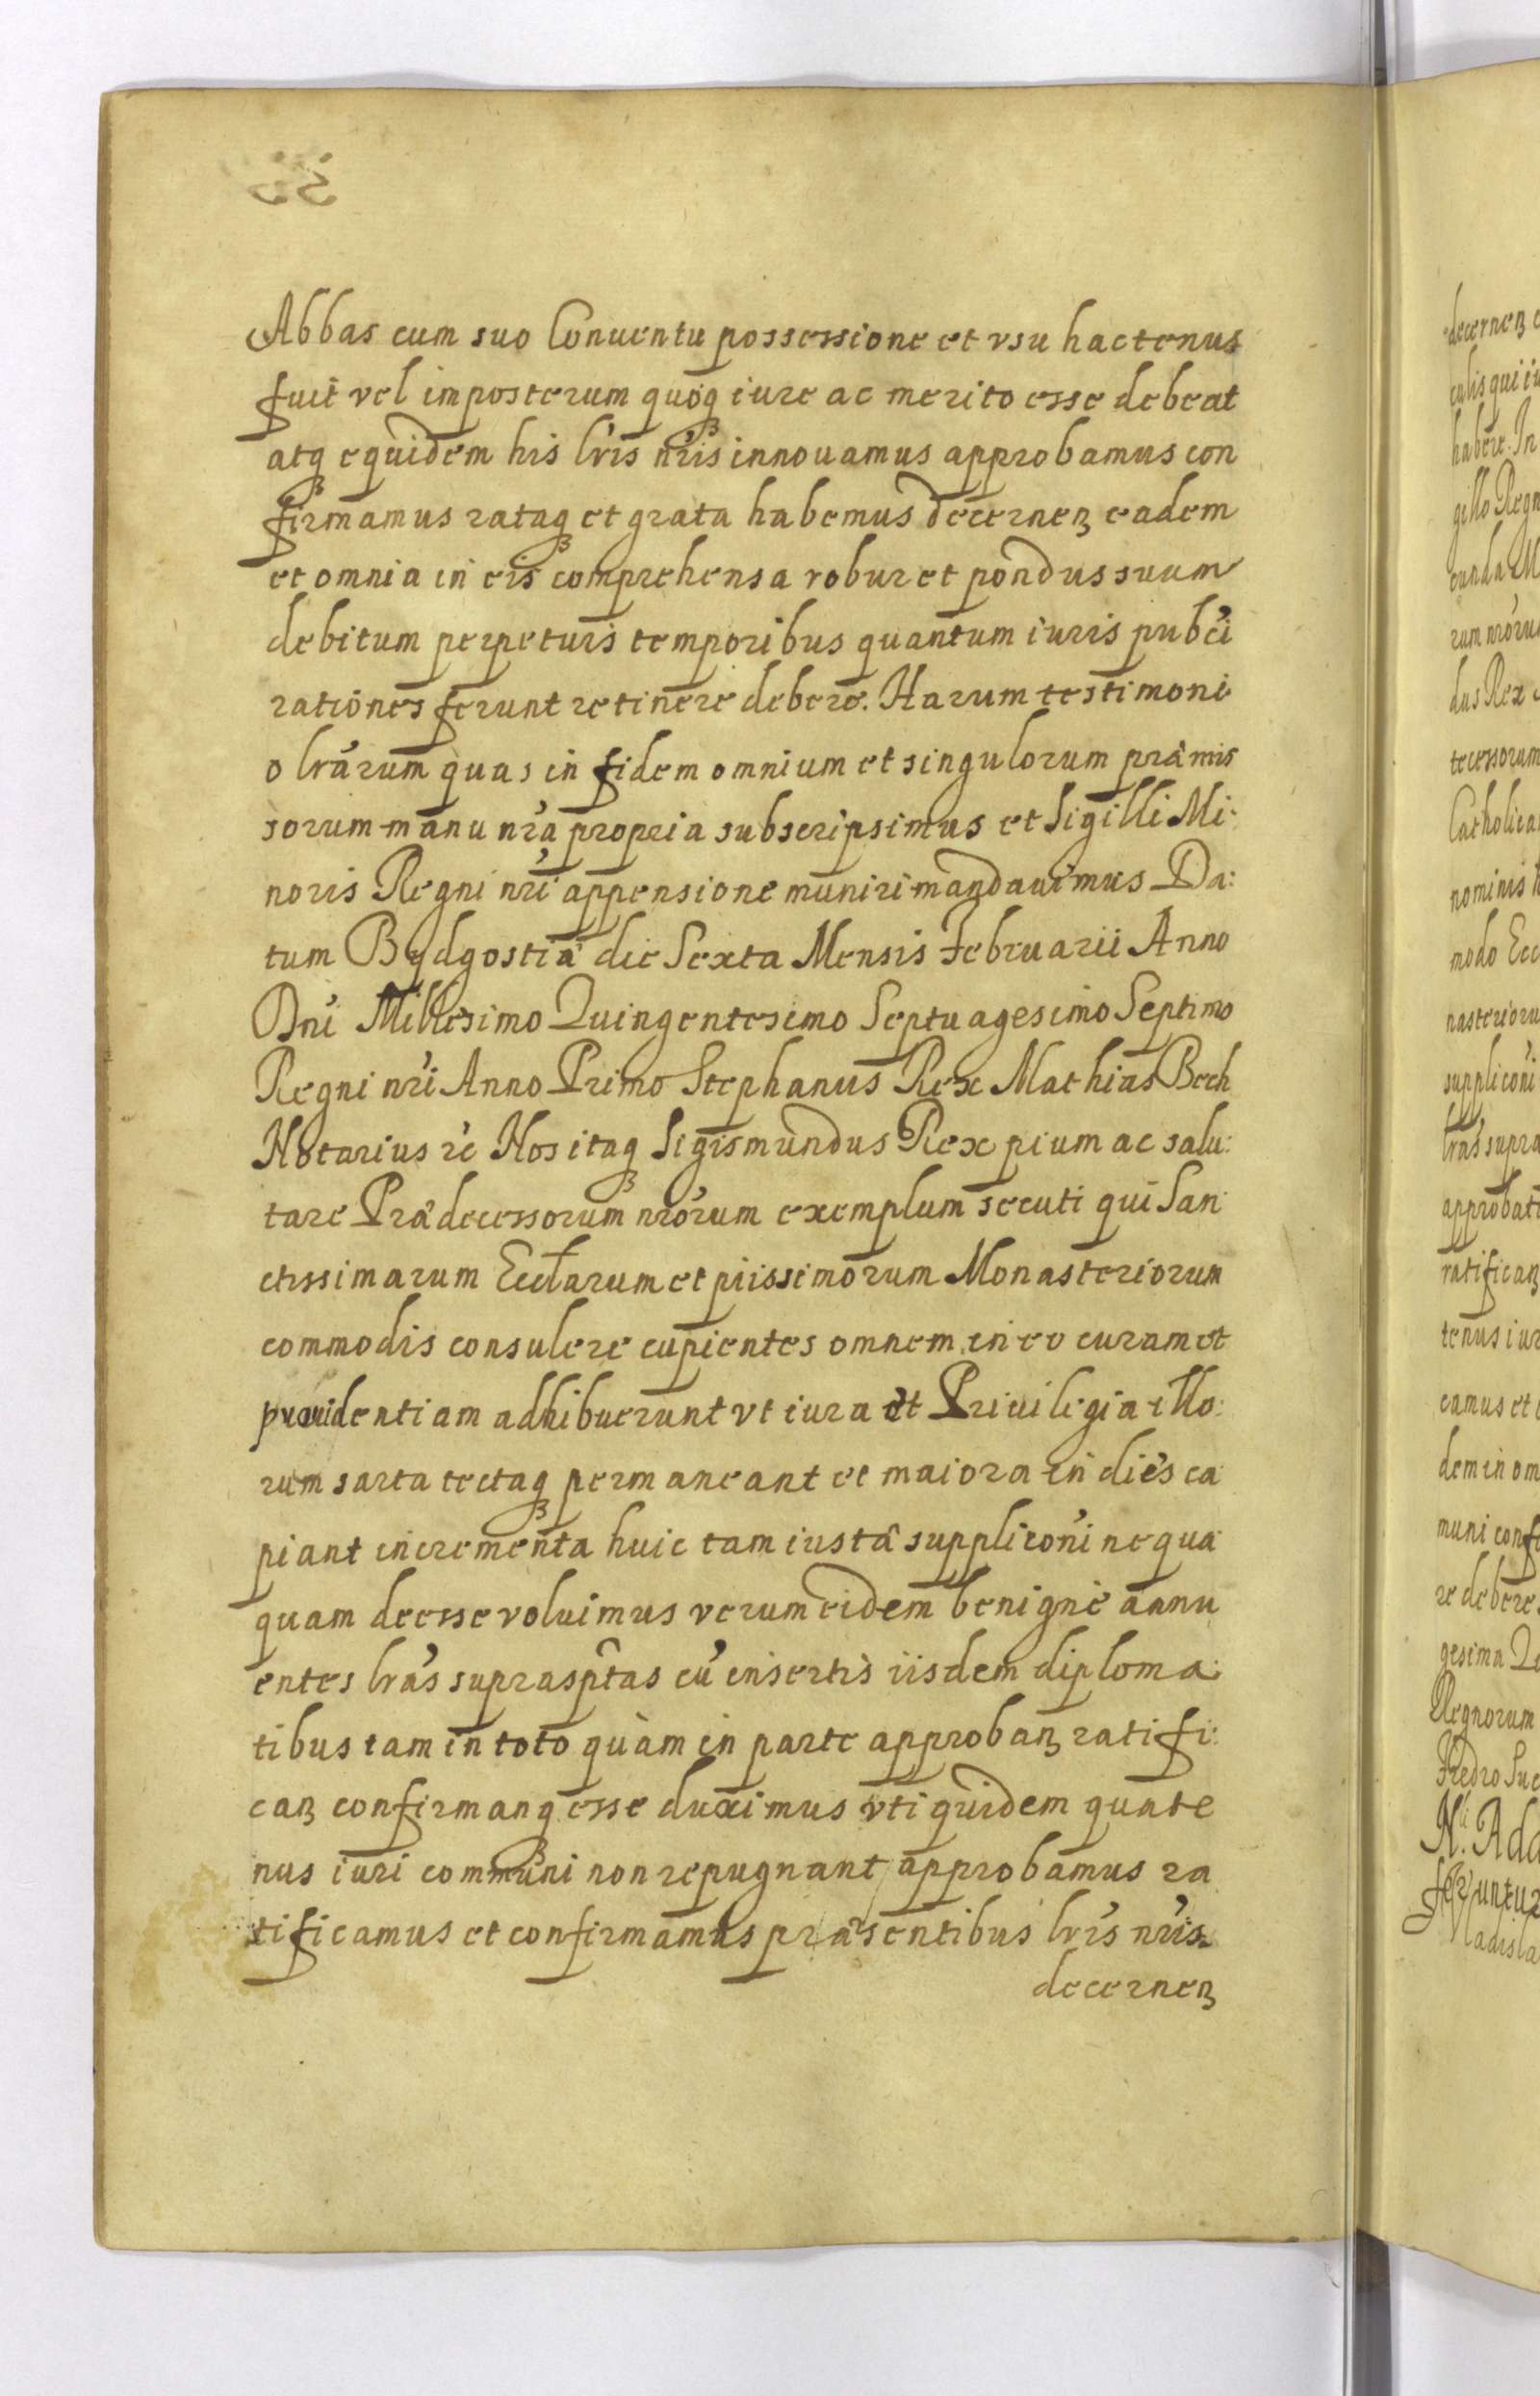 Abbas cum suo Conuentu possessione et vsu hactenus
fuit vel imposterum quoqꝫ iure ac merito esse debeat
atqꝫ equidem his lr̃is nr̃is innouamus approbamus con
firmamus rataqꝫ et grata habemus decernenꝫ eadem
et omnia in eis comprehensa robur et pondus suum
debitum perpetuis temporibus quantum iuris pubci
rationes ferunt retinere debere. Harum testimoni
o lrarum quas in fidem omnium et singulorum præmis
sorum manu nra propria subscripsimus et Sigilli Mi:
noris Regni nri appensione muniri mandauimus Da:
tum Bydgostiæ die Sexta Mensis Februarii Anno
Dni Millesimo Quingentesimo Septuagesimo Septimo
Regni nri Anno Primo Stephanus Rex Mathias Bech
Notarius rc Nos itaqꝫ Sigismundus Rex pium ac salu:
tare Prædecessorum nrorum exemplum secuti qui San
ctissimarum Ecclarum et piissimorum Monasteriorum
commodis consulere cupientes omnem in eo curam et
prouidentiam adhibuerunt vt iura et Priuilegia illo:
rum sarta tectaqꝫ permaneant et maiora in dies ca
piant incrementa huic tam iustæ suppliconi nequa
quam deesse voluimus verum eidem benigne annu
entes lras suprasptas cu insertis iisdem diploma:
tibus tam in toto quàm in parte approbanꝫ ratifi:
canꝫ confirmanqꝫ esse duximus vti quidem quate
nus iuri communi non repugnant approbamus ra
tificamus et confirmamus præsentibus lris nris
decernenꝫ